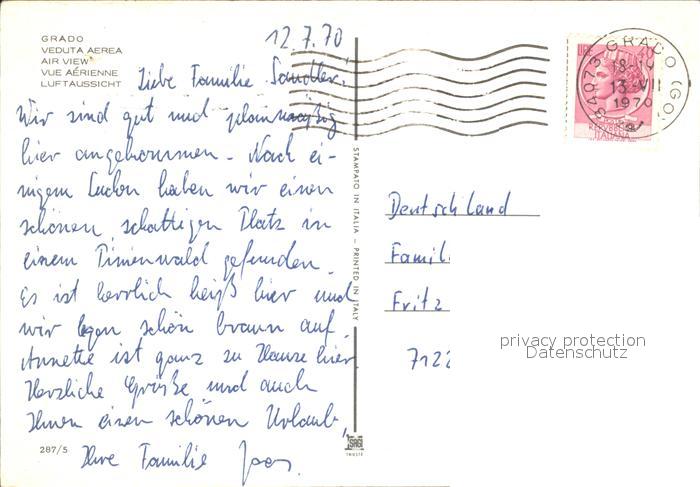 GRADO
VEDUTA AEREA
AIR VIEW
VUE AÉRIENNE
LUFTAUSSICHT
12.7.70
Liebe Familie Sandler,
Wir sind gut und planmäßig
hier angekommen. Nach ei-
nigem Suchen haben wir einen
schönen schattigen Platz in
einem Pinienwald gefunden.
Es ist herrlich heiß hier und
wir legen schön braun auf.
Annette ist ganz zu Hause hier.
Herzliche Grüße und auch
Ihnen einen schönen Urlaub,
Ihre Familie
287/5
STAMPATO IN ITALIA - PRINTED IN ITALY
TRIESTE
34073 GRADO (GO)
13.VII
1970
REPVBBLICA
ITALIANA
Deutschland
Famil
Fritz
7122
privacy protection
Datenschutz